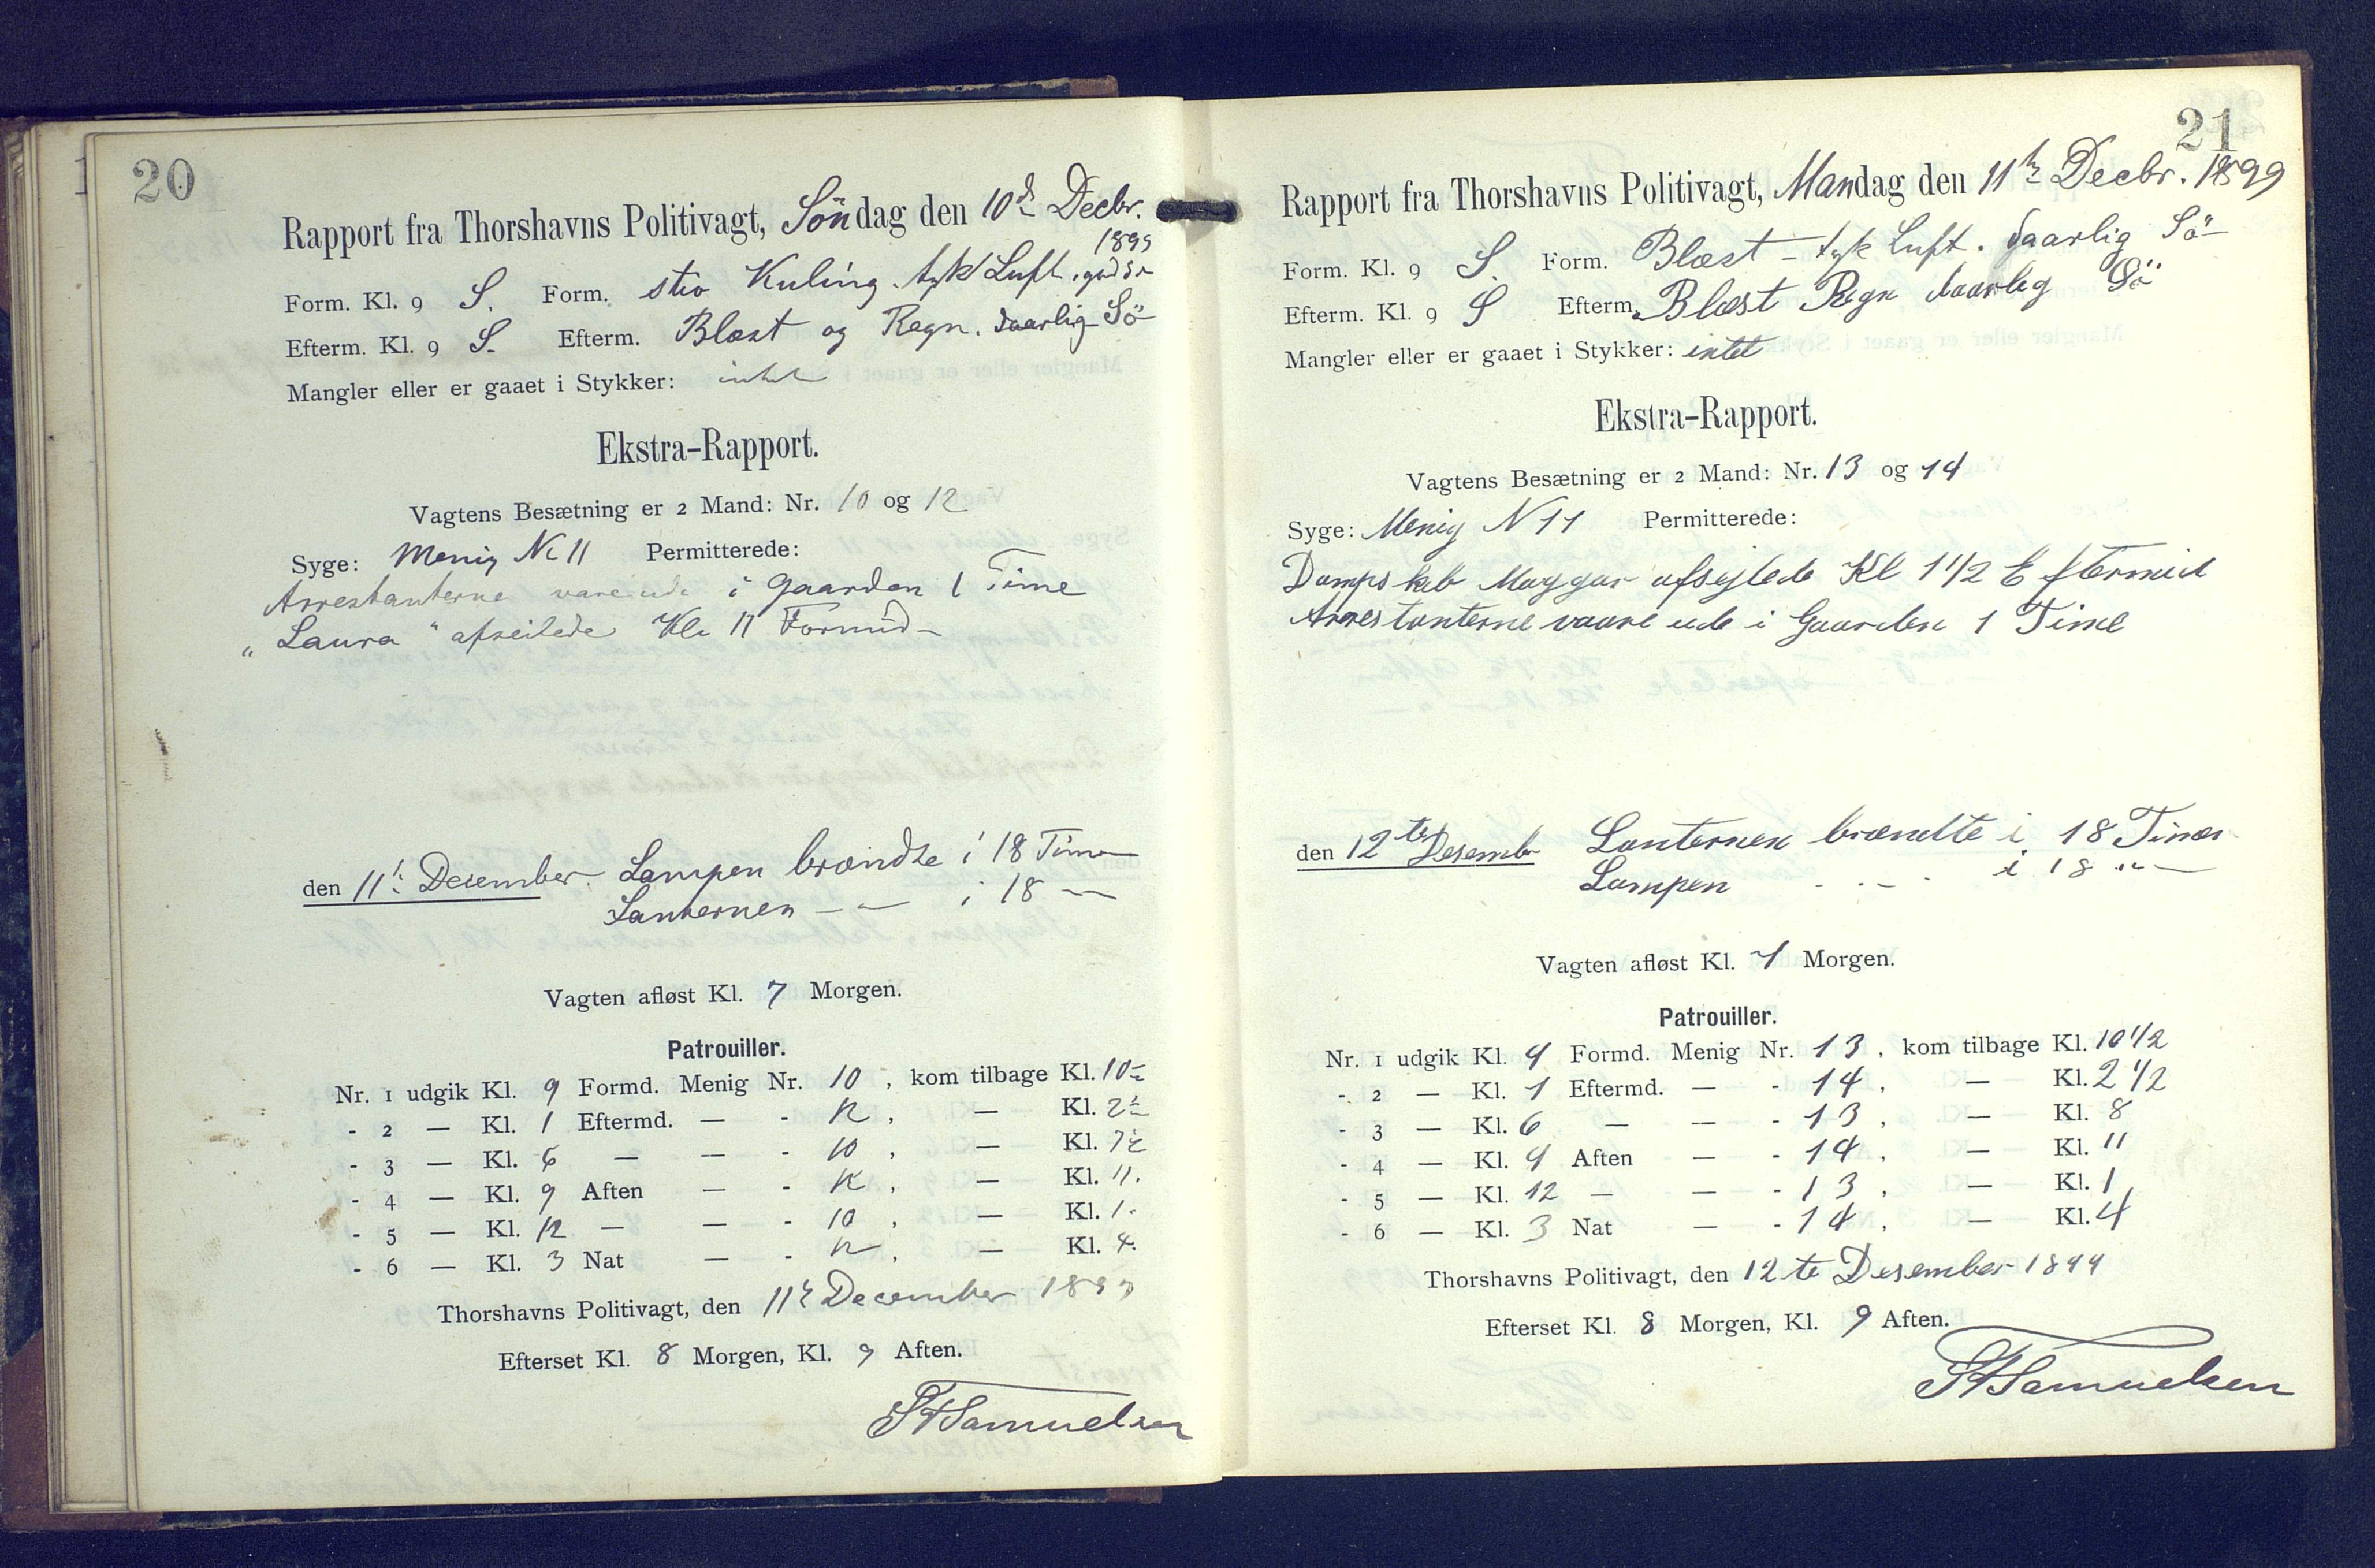 20
Rapport fra Thorshavns Politivagt, Söndag den 10de Decbr.
1899
Form. Kl. 9 S. Form. stiv Kuling. tyk Luft. god Sö
Efterm. Kl. 9 S. Efterm. Blæst og Regn. daarlig Sö
Mangler eller er gaaet i Stykker: intet
Ekstra-Rapport.
Vagtens Besætning er 2 Mand: Nr. 10 og 12
Syge: Menig No 11 Permitterede:
Arrestanterne vare ude i Gaarden 1 Time
„Laura" afseilede Kl. 11 Formid-
den 11te December. Lampen brændte i 18 Timer
Lanternen — — i 18 —
Vagten afløst Kl. 7 Morgen.
Patrouiller.
Nr. 1 udgik Kl. 9 Formd. Menig Nr. 10, kom tilbage Kl. 10½
- 2 — Kl. 1 Eftermd. — - 12, — Kl. 2½
- 3 — Kl. 6 — — - 10, — Kl. 7½
- 4 — Kl. 9 Aften — - 12, — Kl. 11.
- 5 — Kl. 12 — — - 10, — Kl. 1.
- 6 — Kl. 3 Nat — - 12, — Kl. 4.
Thorshavns Politivagt, den 11te December 1899
Efterset Kl. 8 Morgen, Kl. 9 Aften.
Samuelsen
21
Rapport fra Thorshavns Politivagt, Mandag den 11te Decbr. 1899
Form. Kl. 9 S. Form. Blæst - tyk Luft. daarlig Sö
Efterm. Kl. 9 S Efterm. Blæst Regn daarlig Sö
Mangler eller er gaaet i Stykker: intet
Ekstra-Rapport.
Vagtens Besætning er 2 Mand: Nr. 13 og 14
Syge: Menig N 11 Permitterede:
Dampskib Maggar afsejlede Kl 1 1/2 Eftermid
Arrestanterne vaare ude i Gaarden 1 Time
den 12te Desembr Lanternen brændte i 18 Timer
Lampen - - - i 18 "—
Vagten afløst Kl. 7 Morgen.
Patrouiller.
Nr. 1 udgik Kl. 9 Formd. Menig Nr. 13, kom tilbage Kl. 10 1/2
- 2 — Kl. 1 Eftermd. — - 14, — Kl. 2 1/2
- 3 — Kl. 6 — — - 13, — Kl. 8
- 4 — Kl. 9 Aften — - 14, — Kl. 11
- 5 — Kl. 12 — — - 13, — Kl. 1
- 6 — Kl. 3 Nat — - 14, — Kl. 4
Thorshavns Politivagt, den 12te Desember 1899
Efterset Kl. 8 Morgen, Kl. 9 Aften.
Samuelsen